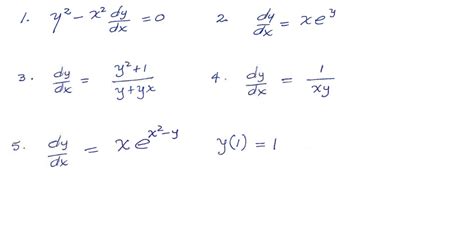 1. y² - x² dy/dx = 0 2. dy/dx = xe^y
3. dy/dx = (y²+1)/(y+yx) 4. dy/dx = 1/(xy)
5. dy/dx = xe^(x²-y) y(1) = 1